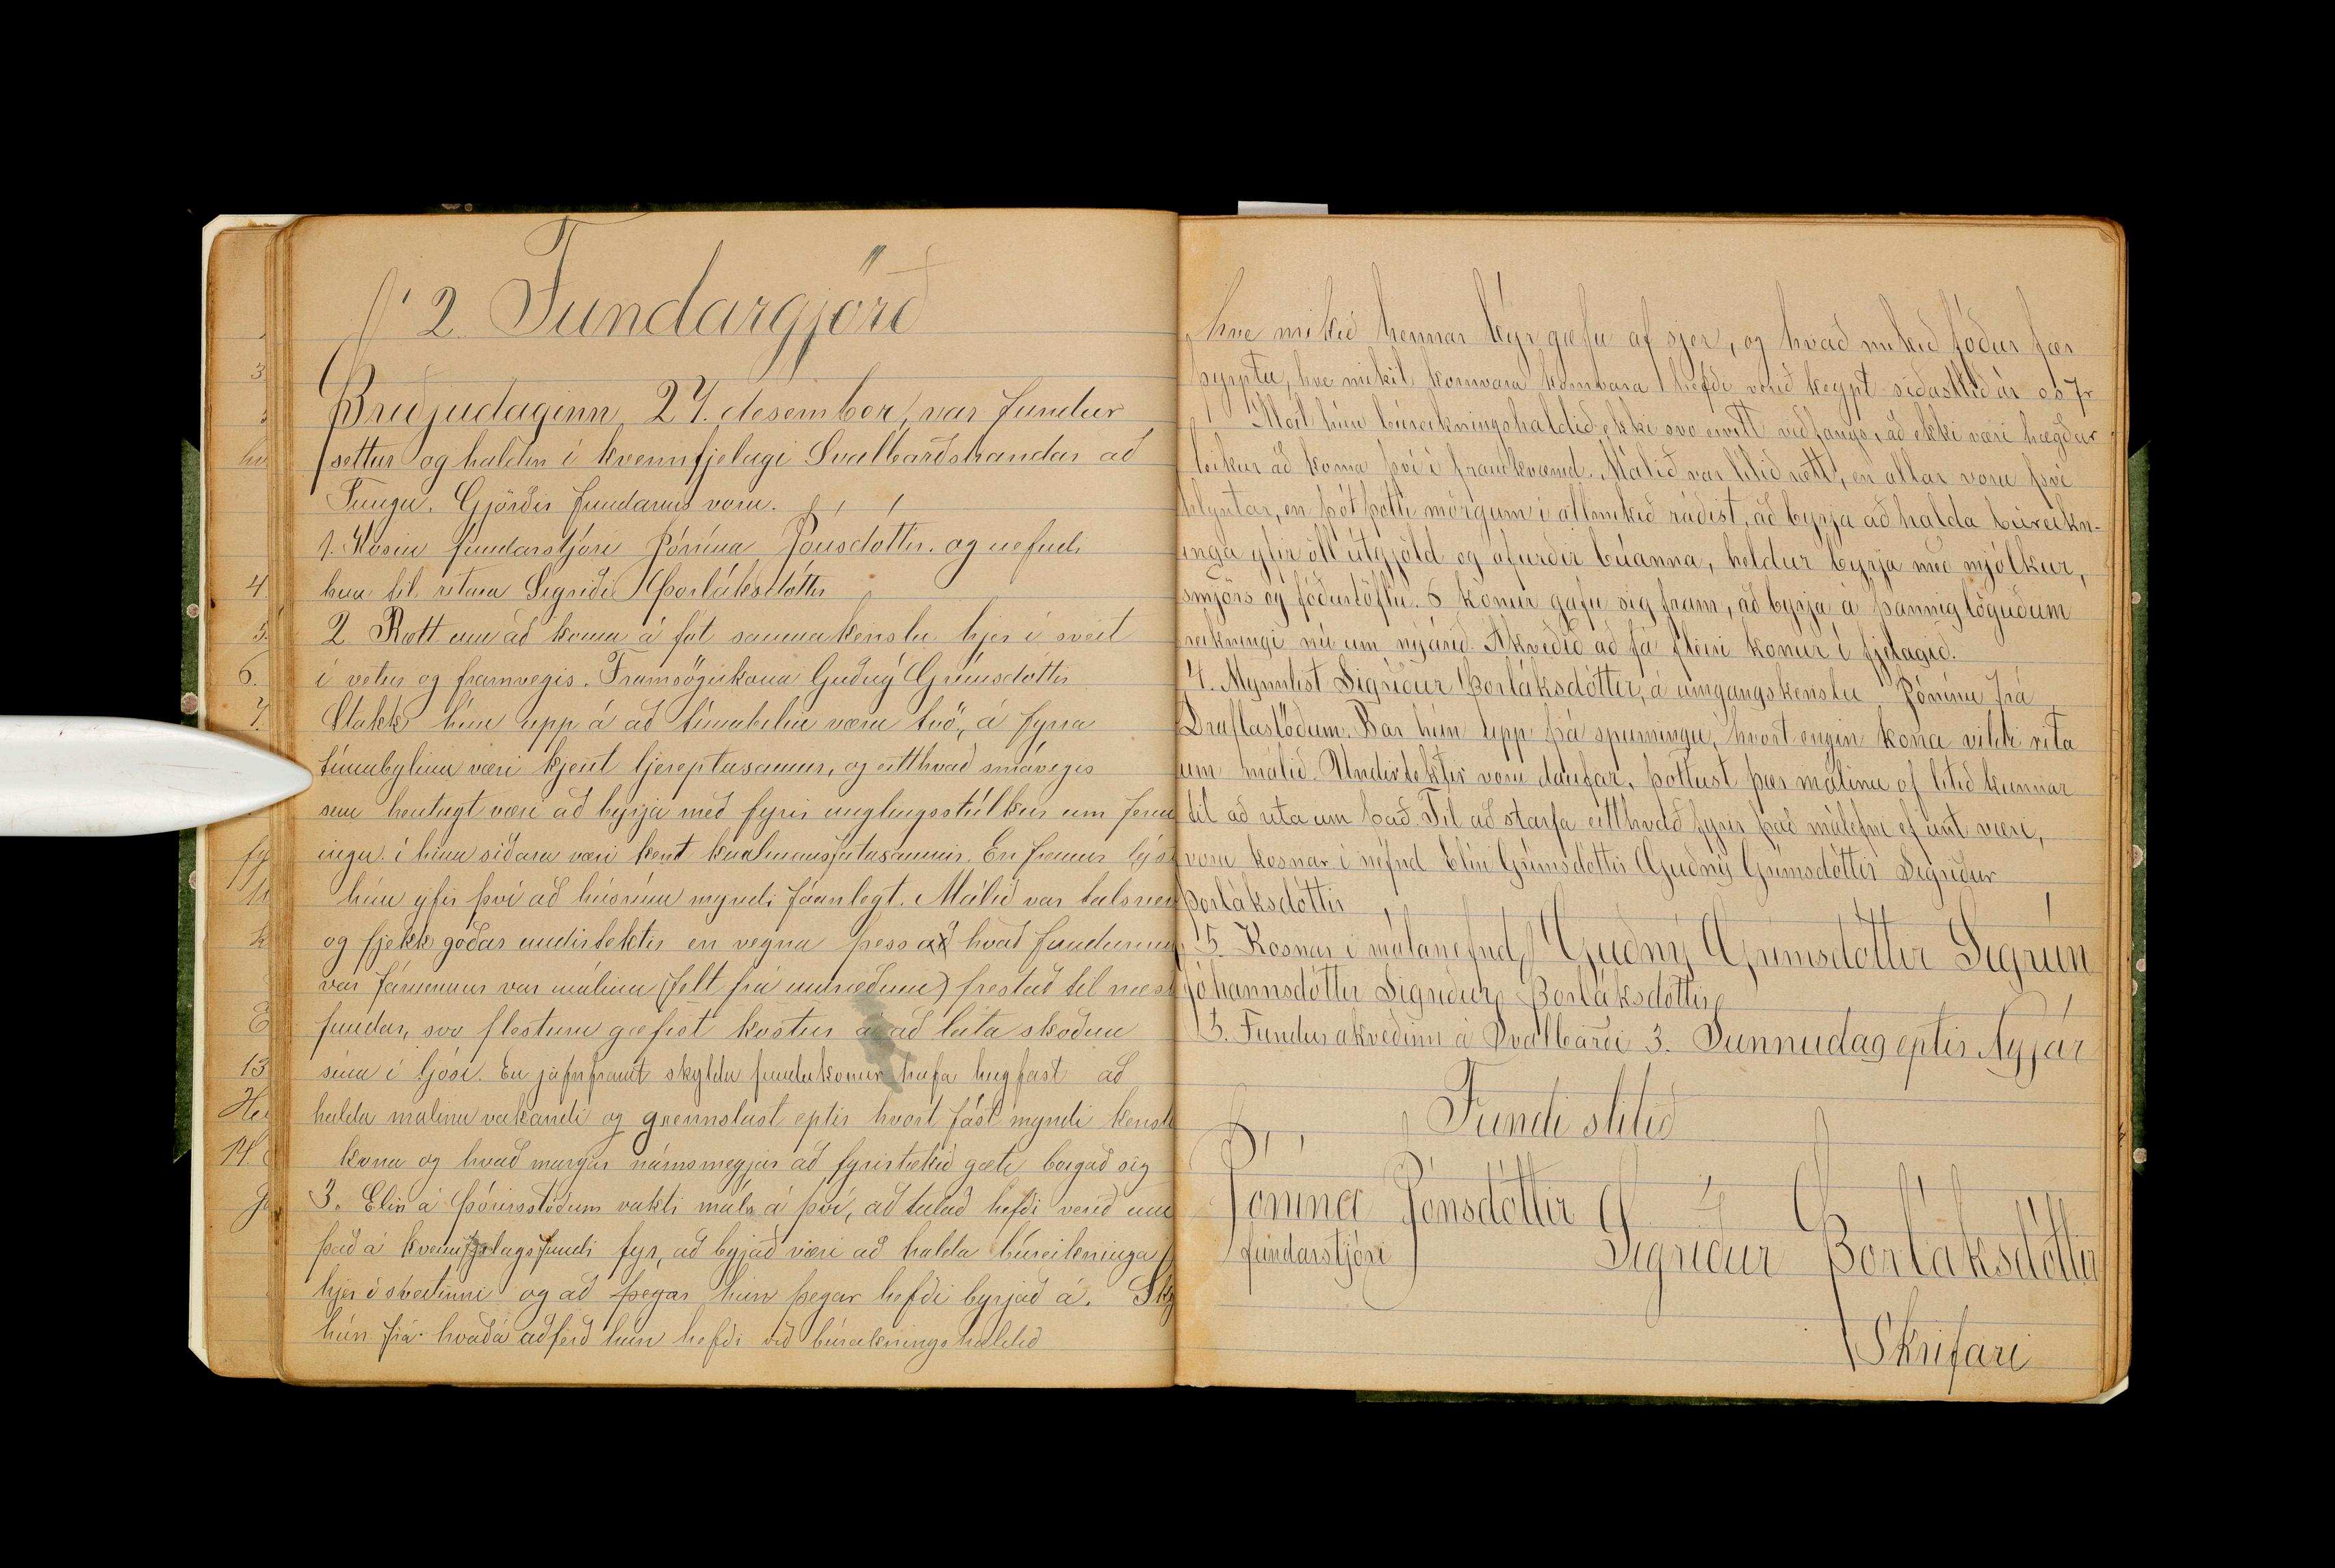 2. Fundargjörð
Þriðjudaginn 27. desember, var fundur
settur og haldin í kvennfjelagi Svalbarðstrandar að
Tungu. Gjörðir fundarins voru.
1. Kosin fundarstjóri Jónína Jónsdóttir. og nefndi
hun til ritara Sigríði Þorláksdóttir
2 Rætt um að koma á fót saumakenslu hjer í sveit
í vetur og framvegis. Framsögukona Guðný Grímsdóttir
Stakk hún upp á að tímabilin væru tvö, á fyrra
tímabylinu væri kjent ljereptasaumur, og eitthvað smávegis
sem hentugt væri að byrja með fyrir unglingsstúlkur um ferm
ingu. í hinu síðara væri kent kvalmansfatasaumur. En fremur lýs
hún yfir því að húsrúm myndi fáanlegt. Málið var talsver
og fjekk góðar undirtektir en vegna þess að hvað fundurinn
var fámennur var málinu (felt frá umræðum) frestað til næst
fundar, svo flestum gæfist kostur á að láta skoðun
sína í ljósi. En jafnframt skyldu fundukonur hafa hugfast að
halda malinu vakandi og grennslast eptir hvort fást myndi kenslu
kona og hvað margar námsmeyjar að fyristækið gæti borgað sig
3. Elin á Þórisstöðum vakti máls á því, að talað hefði verið um
það á kvennfjelagsfundi fyr, að byjað væri að halda búreikninga
hjer í sveitinni og að þegar hún þegar hefði byrjað á. Sky
hún frá hvaða aðferð hún hefði við búreikningshaldið
hve mikið hennar kýr gæfu af sjer, og hvað mikið fóður þær
þyrptu, hve mikil kornvara kornvara hefði verið keypt síðastlið ár osfr
Áleit hún búreikningshaldið ekki svo ervitt viðfangs, að ekki væri hægður
leikur að koma því í framkvæmd. Málið var lítið rætt, en allar voru því
hlyntar, en þót þótti mörgum í allmikið ráðist, að byrja að halda búreikn-
inga yfir öll útgjöld og afurðir búanna, heldur byrja með mjólkur,
smjörs og fóðurtöflu. 6 konur gáfu sig fram, að byrja á þannig löguðum
reikningi nú um nýárið. Ákveðið að fá fleiri konur í fjelagið.
4. Mynntist Sigríður Þorláksdóttir, á umgangskenslu Jónínu frá
Draflastöðum. Bar hún upp þá spurningu, hvort engin kona vildi rita
um málið. Undirtektir voru daufar, þóttust þær málinu of lítið kunnar
til að rita um það. Til að starfa eitthvað fyrir það málefni ef unt væri,
voru kosnar í nefnd Elín Grímsdóttir Guðný Grímsdóttir Sigríður
Þorláksdóttir
5. Kosnar í málanefnd, Guðný Grímsdóttir Sigrún
Jóhannsdóttir Sigríður Þorláksdóttir
5. Fundur akveðinn á Svalbarði 3. Sunnudag eptir Nyjár
Fundi slitið
Jónína Jónsdóttir Sigríður Þorláksdóttir
fundarstjóri
Skrifari